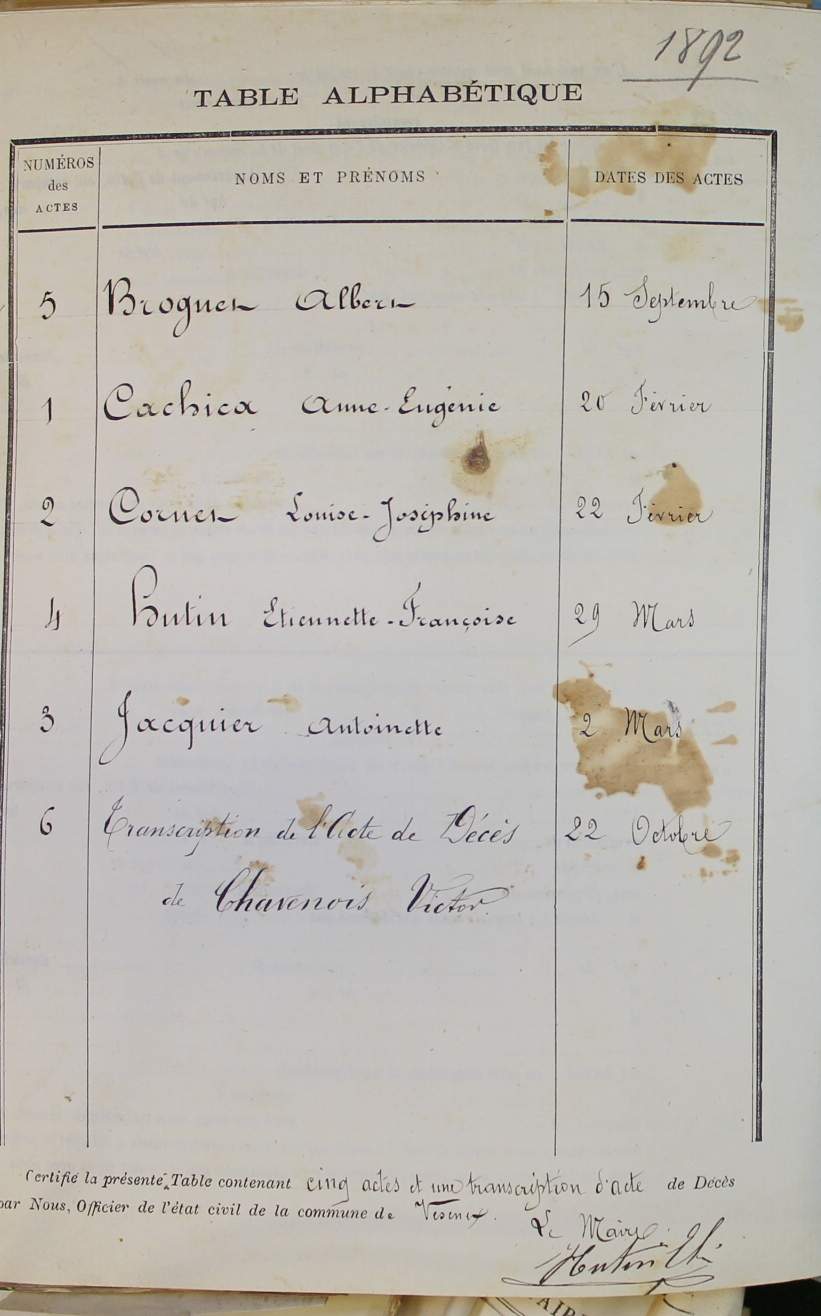 1892
TABLE ALPHABÉTIQUE
NUMÉROS des ACTES NOMS ET PRÉNOMS DATES DES ACTES
5 Broguet Albert 15 Septembre
1 Cachica Anne-Eugénie 20 Février
2 Cornet Louise-Joséphine 22 Février
4 Hutin Etiennette-Françoise 29 Mars
3 Jacquier Antoinette 2 Mars
6 Transcription de l'Acte de Décès 22 Octobre
de Chavenois Victor.
Certifié la présente Table contenant cinq actes et une transcription d'acte de Décès
par Nous, Officier de l'état civil de la commune de Vesenex.
Le Maire
Hutin